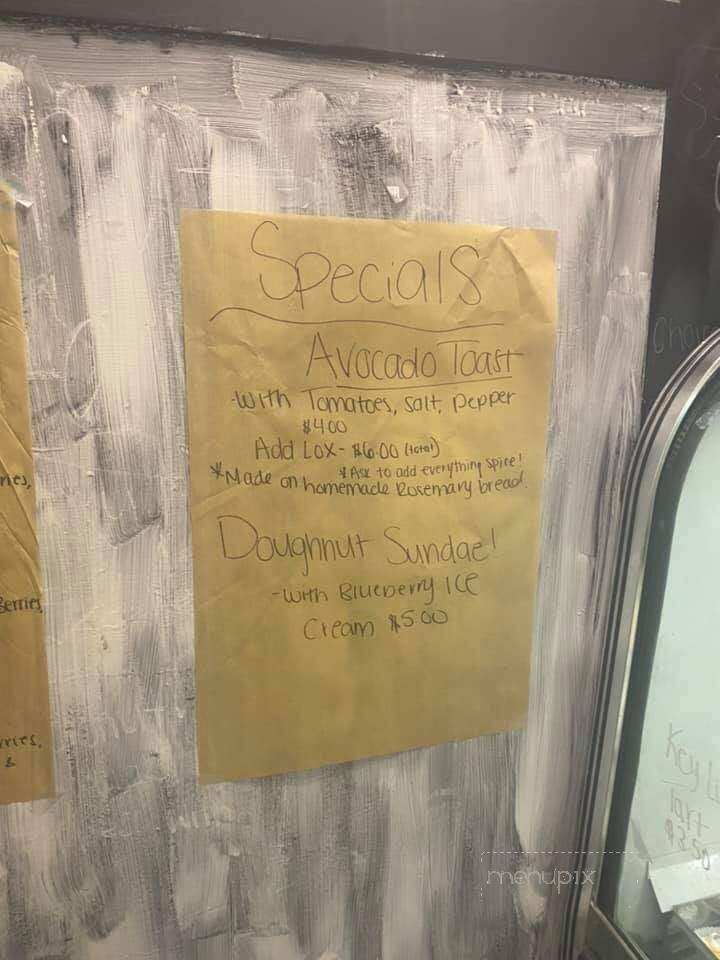 Specials
Avocado Toast
-with Tomatoes, salt, pepper
$4.00
Add Lox - $6.00 (total)
*Ask to add everything spice!
*Made on homemade Rosemary bread
Doughnut Sundae!
-with Blueberry Ice
Cream $5.00
ries,
Berries,
rries,
&
Key Li
Tart
$3.50
menupix